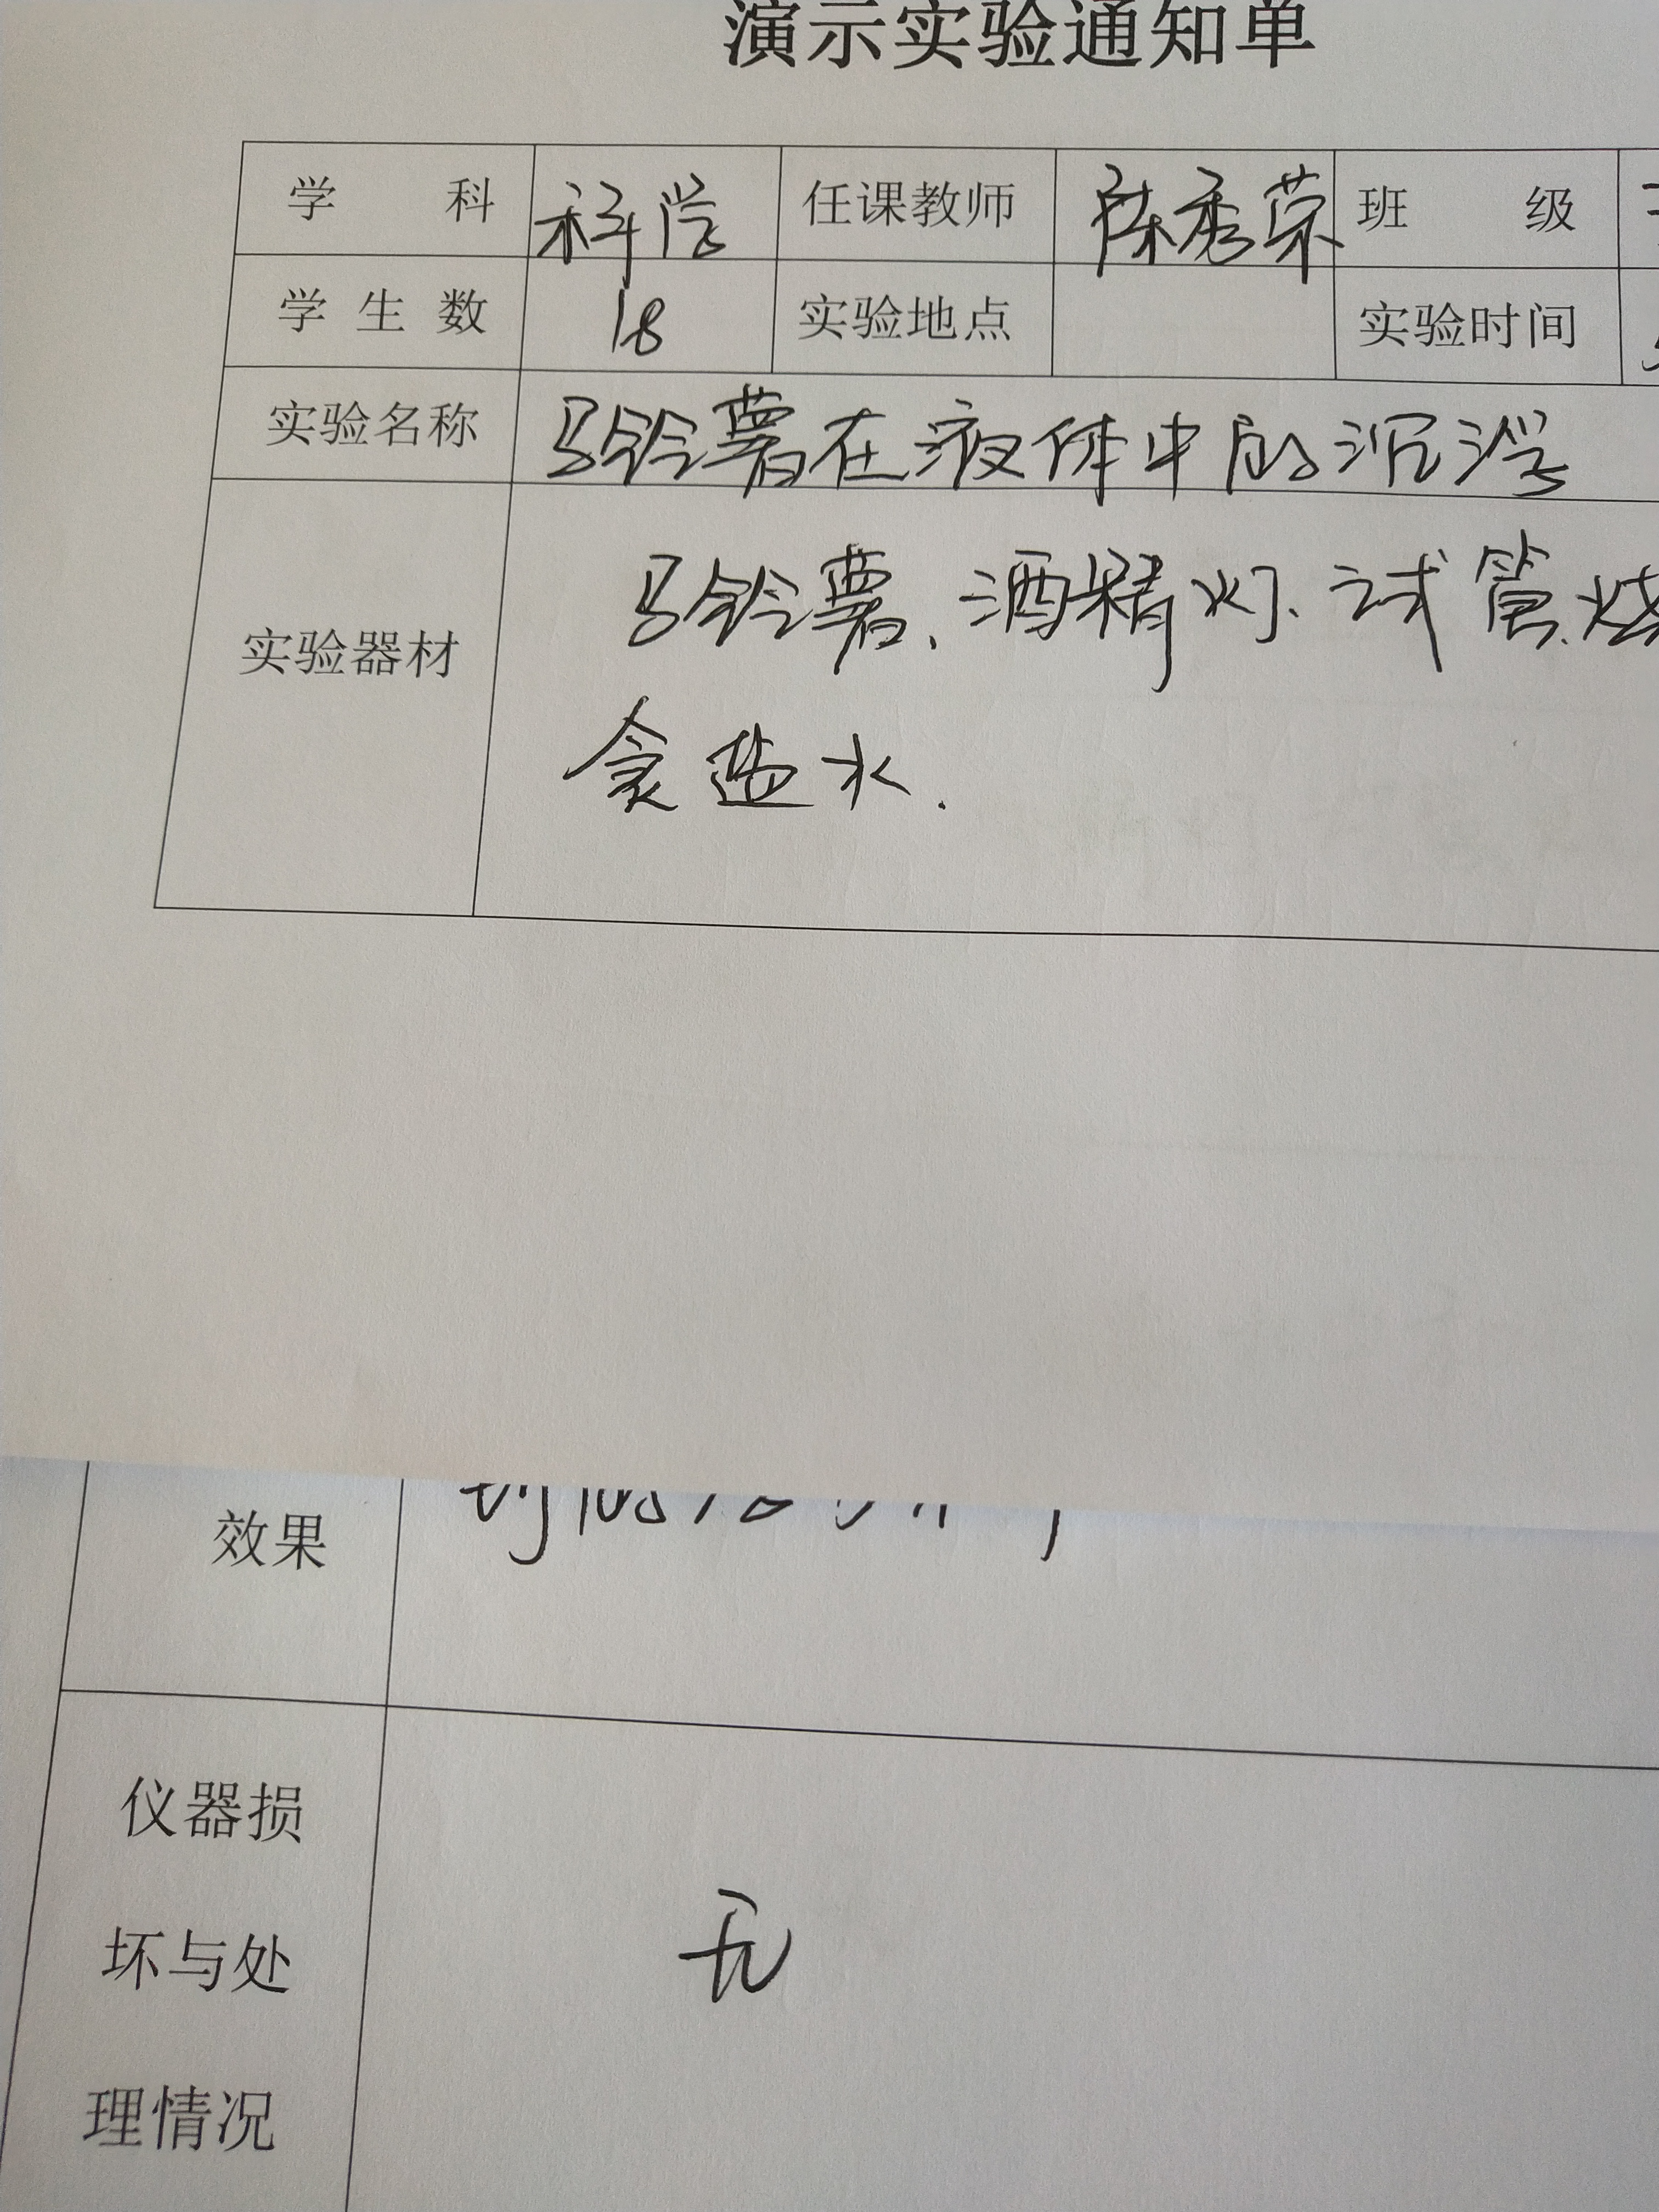 演示实验通知单
学 科 科学 任课教师 陈秀荣 班 级
学生数 18 实验地点 实验时间
实验名称 马铃薯在液体中的沉浮
实验器材 马铃薯、酒精灯、试管、烧
食盐水.
效果
仪器损
坏与处
理情况
无